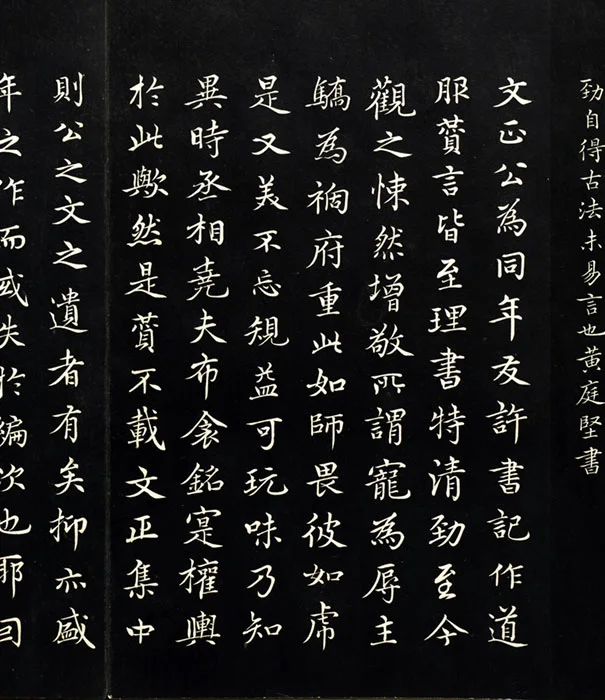 勁自得古法未易言也黃庭堅書
文正公為同年友許書記作道
服贊言皆至理書特清勁至今
觀之悚然增敬所謂寵為辱主
驕為禍府重此如師畏彼如虎
是又美不忘規益可玩味乃知
異時丞相堯夫布衾銘寔權輿
於此歟然是贊不載文正集中
則公之文之遺者有矣抑亦盛
年之作而或失於編次也耶